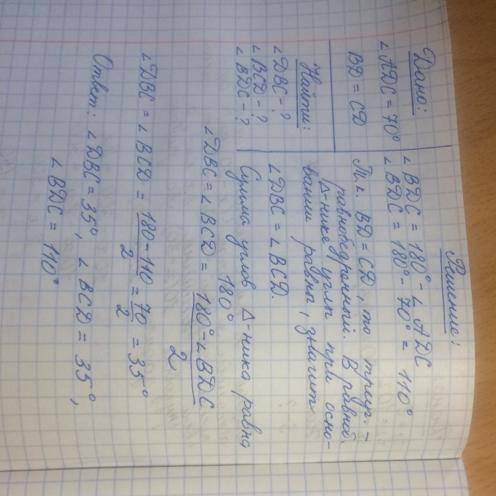 Дано:
∠ADC = 70°
BD = CD
Найти:
∠DBC - ?
∠BCD - ?
∠BDC - ?
Решение:
∠BDC = 180° - ∠ADC
∠BDC = 180° - 70° = 110°
Т.к. BD = CD, то треуг. -
равнобедренный. В равноб.
Δ-нике углы при осно-
вании равны, значит
∠DBC = ∠BCD.
Сумма углов Δ-ника равна
180°
∠DBC = ∠BCD = 180° - ∠BDC / 2
∠DBC = ∠BCD = 180 - 110 / 2 = 70 / 2 = 35°
Ответ: ∠DBC = 35°, ∠BCD = 35°,
∠BDC = 110°